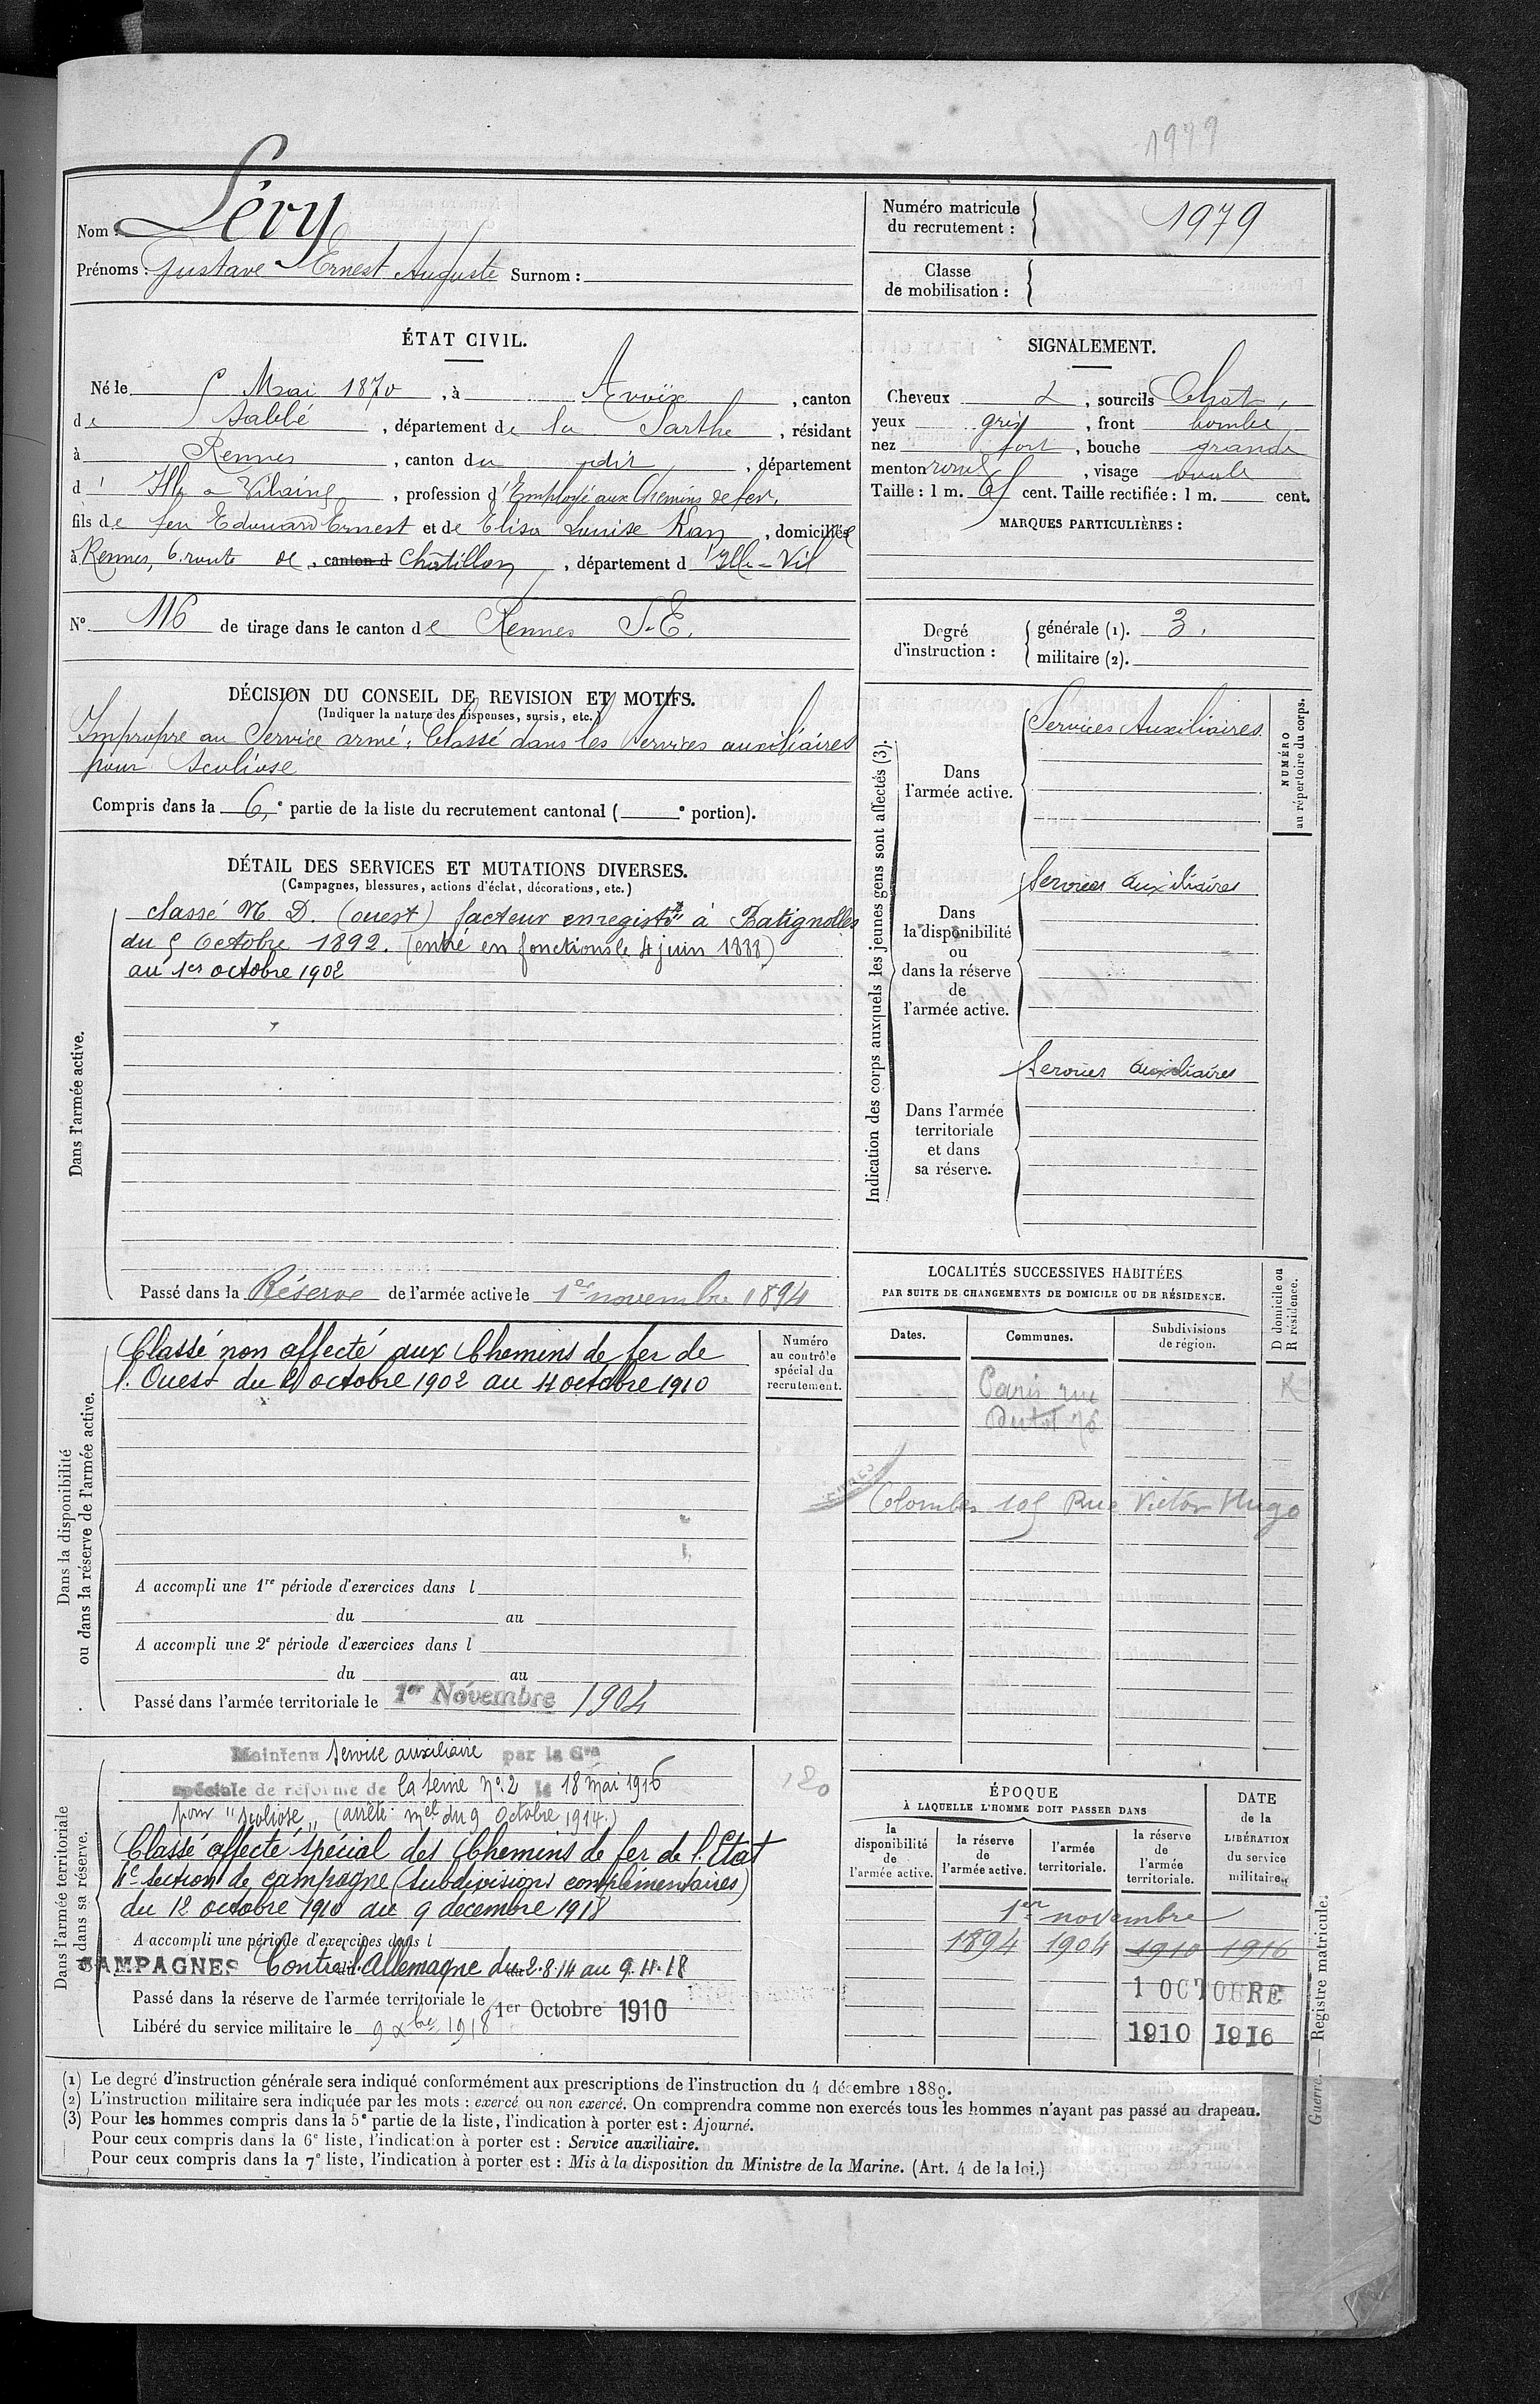 1979
Nom : Lévy
Prénoms : Gustave Ernest Auguste Surnom :
Numéro matricule
du recrutement :
1979
Classe
de mobilisation :
ÉTAT CIVIL.
Né le 5 Mai 1870, à Avoix, canton
de Sablé, département de la Sarthe, résidant
à Rennes, canton du dit, département
d'Ille-Vilaine, profession d'Employé aux Chemins de fer,
fils de feu Edouard Ernest et de Elisa Louise Kan, domiciliée
à Rennes, 6. route de, canton d Châtillon, département d'Ille-Vil
N° 116 de tirage dans le canton de Rennes S.E.
SIGNALEMENT.
Cheveux &, sourcils Chat,
yeux gris, front bombé
nez fort, bouche grande
menton rond, visage ovale
Taille : 1 m. cent. Taille rectifiée : 1 m. cent.
MARQUES PARTICULIÈRES :
Degré
d'instruction :
générale (1). 3.
militaire (2).
DÉCISION DU CONSEIL DE REVISION ET MOTIFS.
(Indiquer la nature des dispenses, sursis, etc.)
Impropre au Service armé; Classé dans les Services auxiliaires
pour Scoliose
Compris dans la 6,e partie de la liste du recrutement cantonal ( e portion).
DÉTAIL DES SERVICES ET MUTATIONS DIVERSES.
(Campagnes, blessures, actions d'éclat, décorations, etc.)
Dans l'armée active.
classé N. D. (ouest) facteur enregistr à Batignolles
du 5 Octobre 1892. (entré en fonctions le 4 juin 1888)
au 1er octobre 1902
Passé dans la Réserve de l'armée active le 1er novembre 1894
Indication des corps auxquels les jeunes gens sont affectés (3).
NUMÉRO
au répertoire du corps.
Dans
l'armée active.
Services Auxiliaires
Dans
la disponibilité
ou
dans la réserve
de
l'armée active.
Services auxiliaires
Dans l'armée
territoriale
et dans
sa réserve.
Services auxiliaires
Dans la disponibilité
ou dans la réserve de l'armée active.
Classé non affecté aux Chemins de fer de
l'Ouest du 2 octobre 1902 au 11 octobre 1910
Numéro
au contrôle
spécial du
recrutement.
A accompli une 1re période d'exercices dans l
du au
A accompli une 2e période d'exercices dans l
du au
Passé dans l'armée territoriale le 1er Novembre 1904
LOCALITÉS SUCCESSIVES HABITÉES
PAR SUITE DE CHANGEMENTS DE DOMICILE OU DE RÉSIDENCE.
D domicile ou
R résidence.
Dates.
Communes.
Subdivisions
de région.
Paris rue
Dutot 76
R
Colombes 105 Rue Victor Hugo
Dans l'armée territoriale
et dans sa réserve.
Maintenu service auxiliaire par la Con
spéciale de réforme de la Seine No 2 le 18 Mai 1916
pour "scoliose" (arrêté mel du 9 Octobre 1914.)
Classé affecté spécial des Chemins de fer de l'Etat
4e section de campagne (Subdivisions complémentaires)
du 12 octobre 1910 au 9 décembre 1918
A accompli une période d'exercices dans l
CAMPAGNES Contre l'Allemagne du 2.8.14 au 9.11.18
Passé dans la réserve de l'armée territoriale le 1er Octobre 1910
Libéré du service militaire le 9 Xbre 1918
180
ÉPOQUE
À LAQUELLE L'HOMME DOIT PASSER DANS
la
disponibilité
de
l'armée active.
la réserve
de
l'armée active.
l'armée
territoriale.
la réserve
de
l'armée
territoriale.
DATE
de la
LIBÉRATION
du service
militaire.
1er novembre
1894 1904 1910 1916
1 OCTOBRE
1910 1916
(1) Le degré d'instruction générale sera indiqué conformément aux prescriptions de l'instruction du 4 décembre 1889.
(2) L'instruction militaire sera indiquée par les mots : exercé ou non exercé. On comprendra comme non exercés tous les hommes n'ayant pas passé au drapeau.
(3) Pour les hommes compris dans la 5e partie de la liste, l'indication à porter est : Ajourné.
Pour ceux compris dans la 6e liste, l'indication à porter est : Service auxiliaire.
Pour ceux compris dans la 7e liste, l'indication à porter est : Mis à la disposition du Ministre de la Marine. (Art. 4 de la loi.)
Guerre. — Registre matricule.